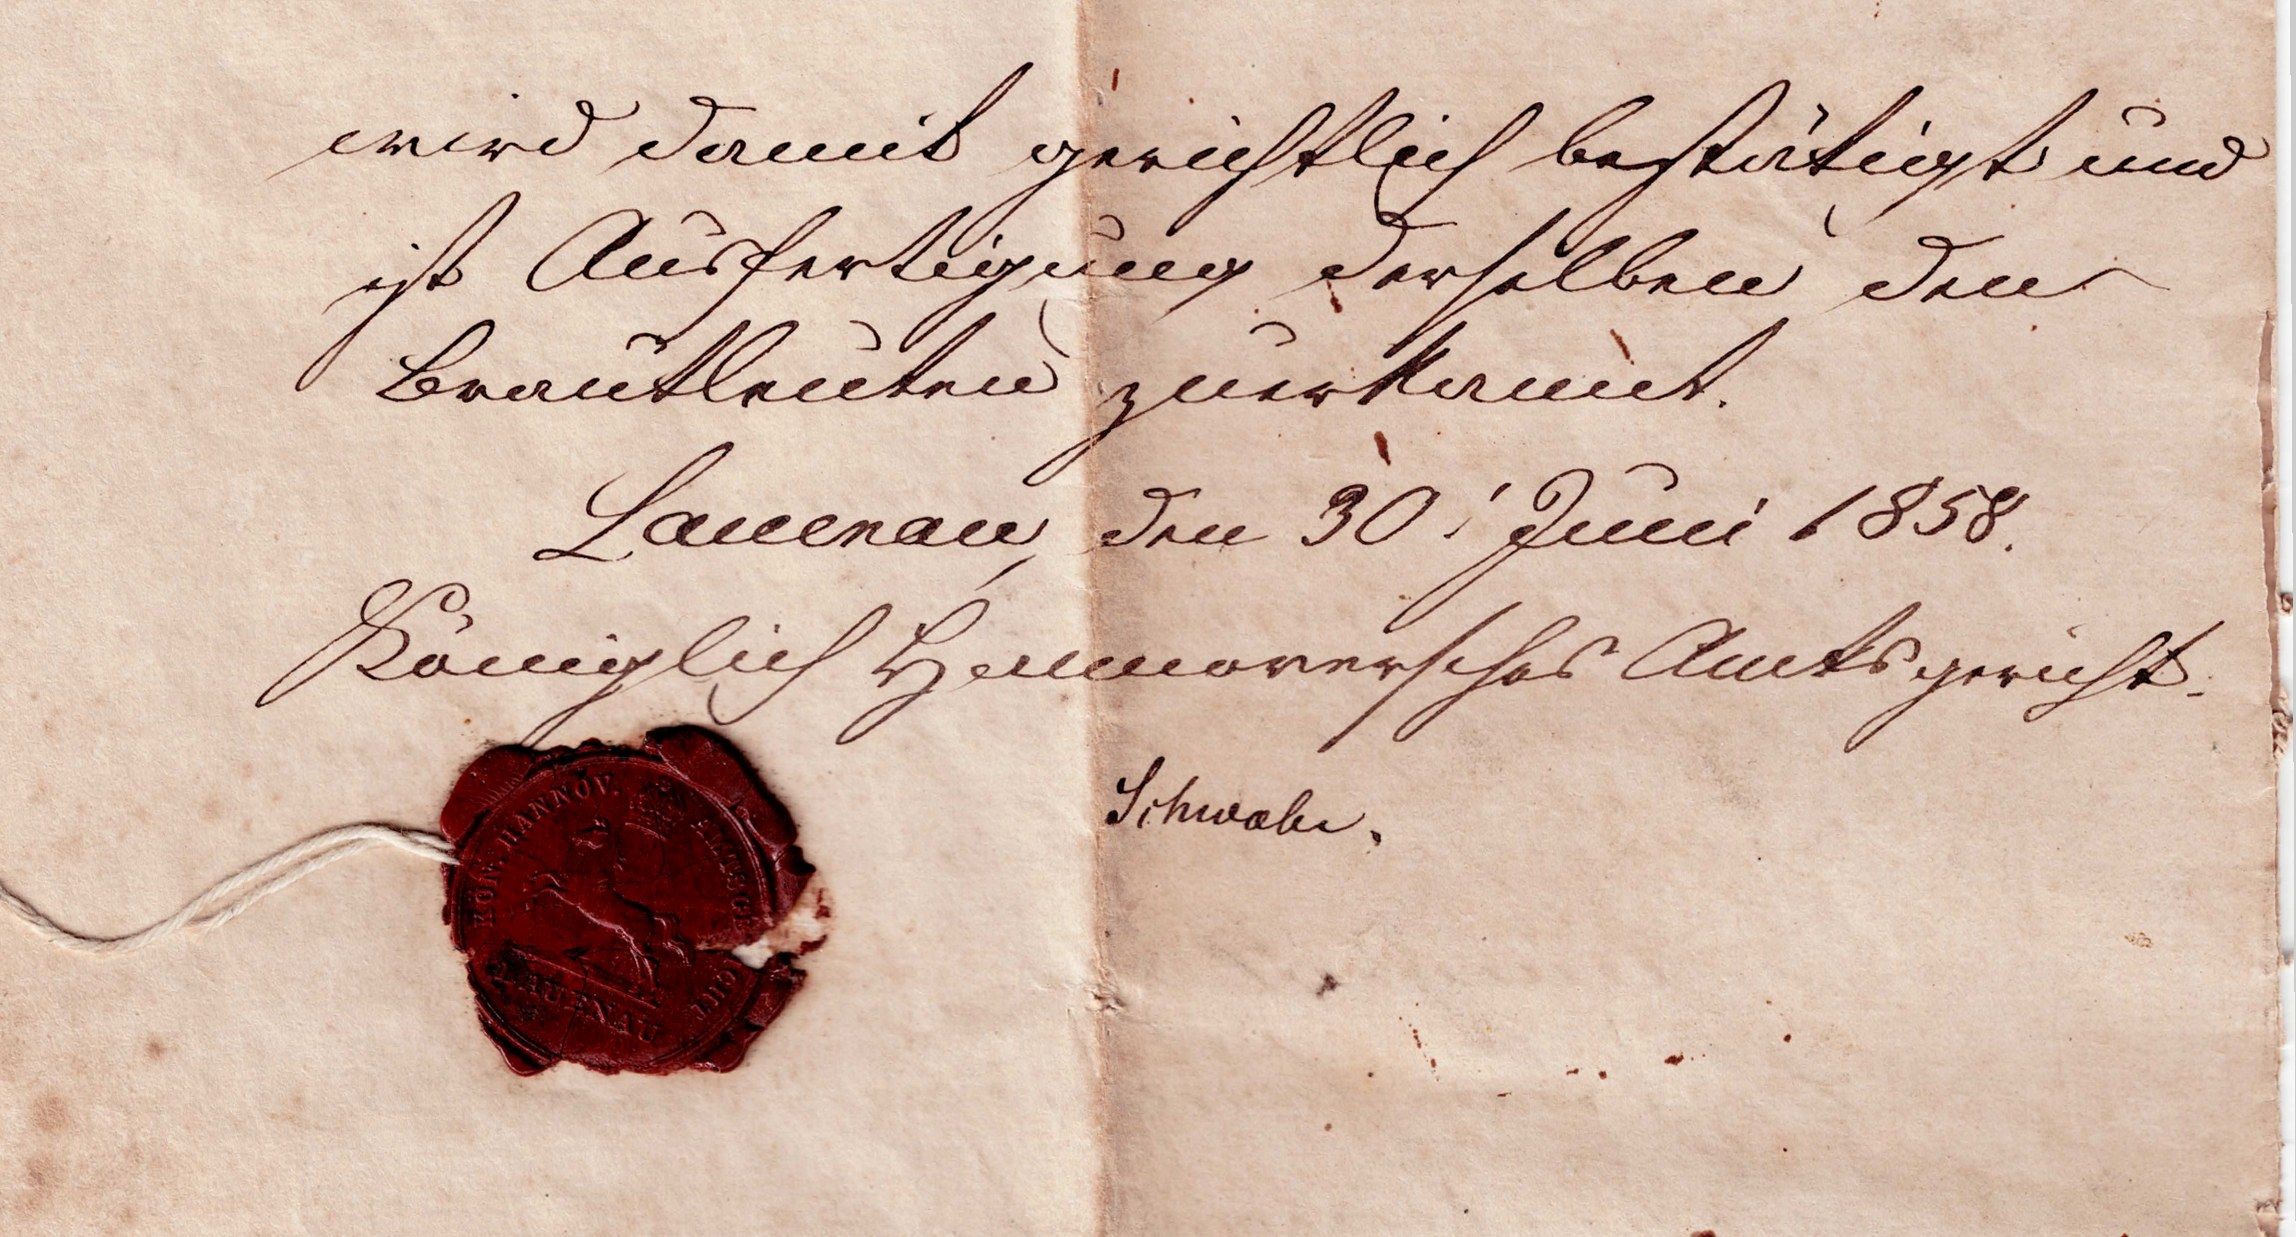 wird damit gerichtlich bestätigt und
ist Ausfertigung derselben den
Brautleuten zuerkannt.
Lauenau, den 30. Juni 1858.
Königlich Hannoversches Amtsgericht.
Schwabe.
KÖN. HANNÖV. AMTSGERICHT
LAUENAU